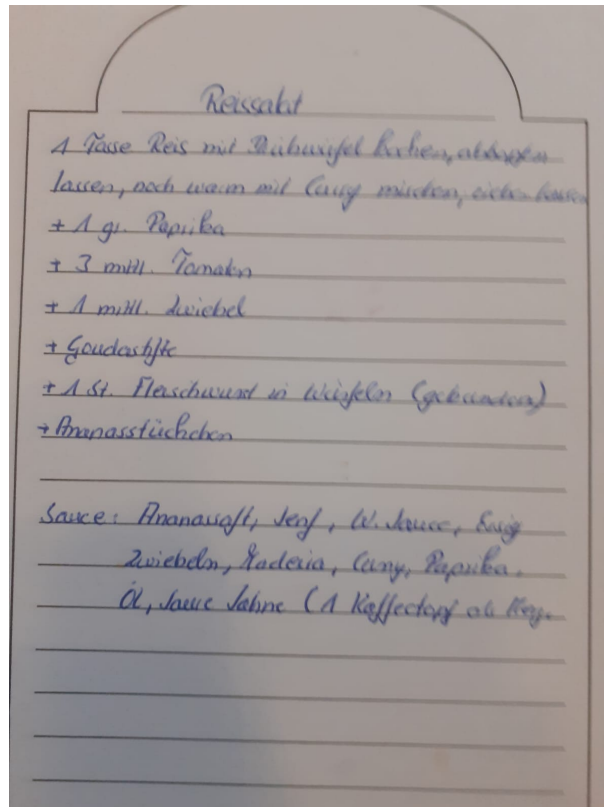 Reissalat
1 Tasse Reis mit Brühwürfel kochen, abtropfen
lassen, noch warm mit Curry mischen, ziehen lassen
+ 1 gr. Paprika
+ 3 mittl. Tomaten
+ 1 mittl. Zwiebel
+ Goudastifte
+ 1 St. Fleischwurst in Würfeln (gebunden)
+ Ananasstückchen
Sauce: Ananassaft, Senf, W. Sauce, Essig
Zwiebeln, Madeira, Curry, Paprika.
Öl, saure Sahne (1 Kaffeetopf